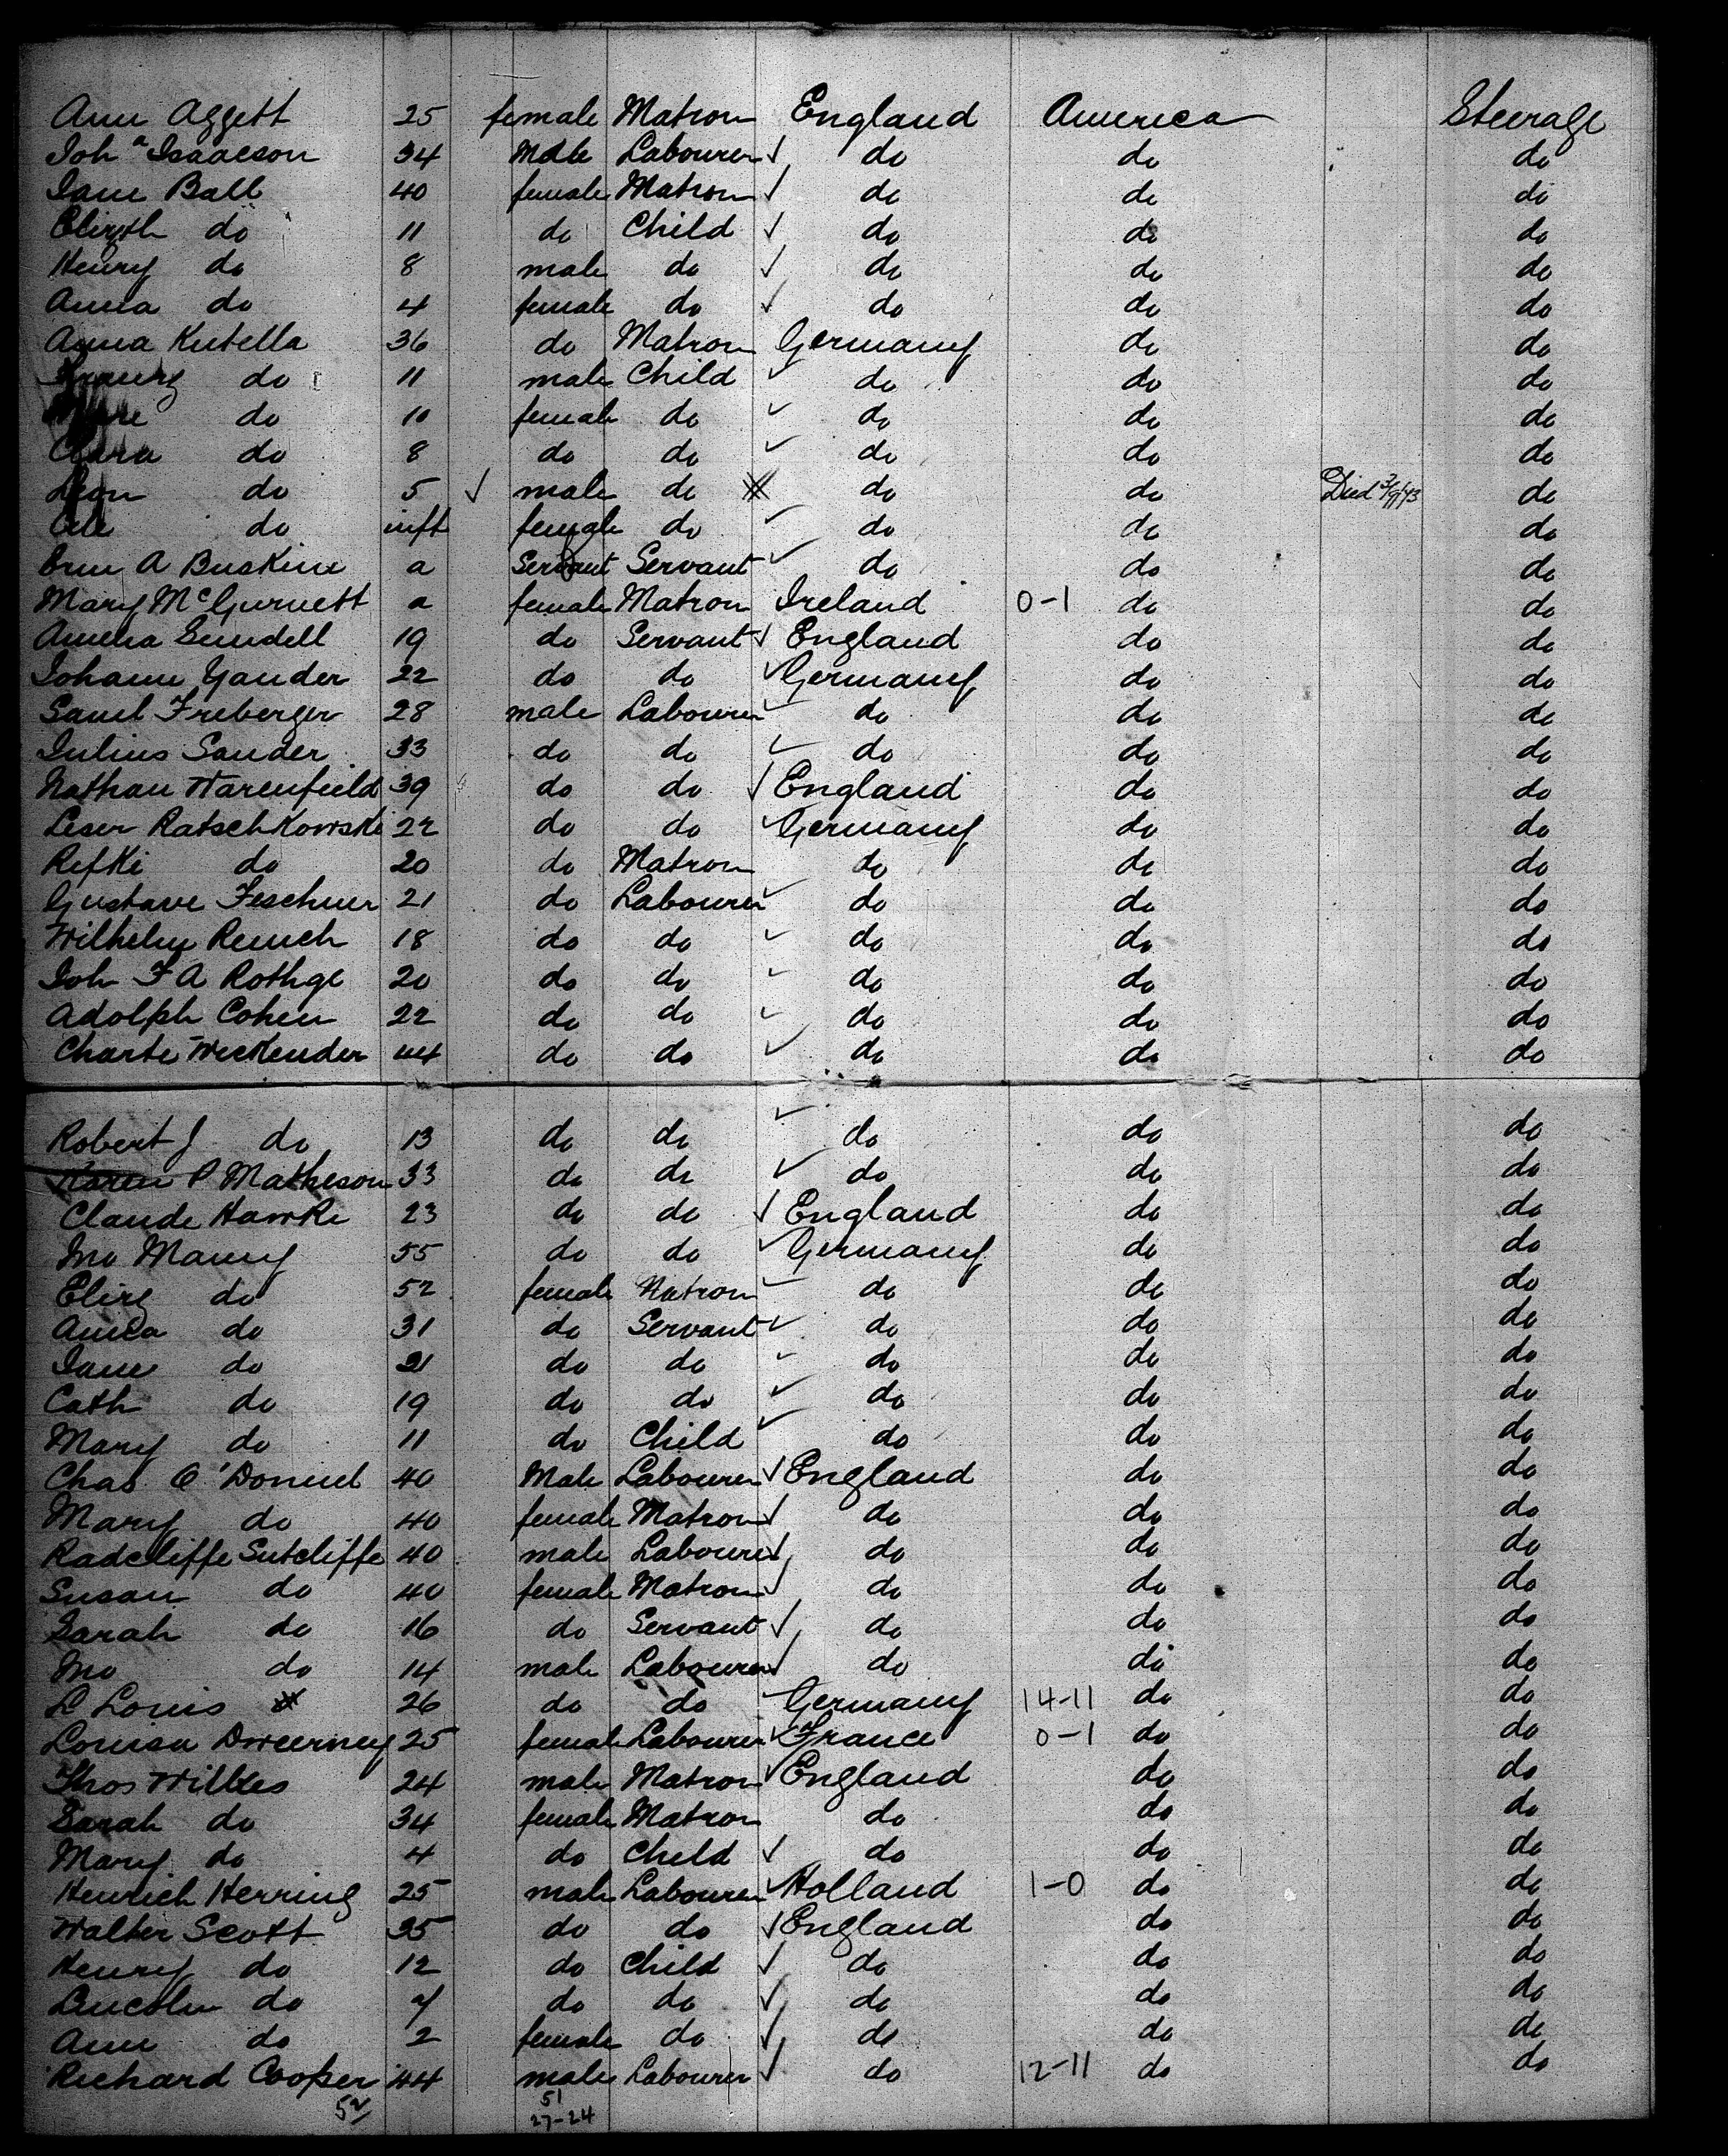 Ann Aggett 25 female Matron England America Steerage
Joh Isaacson 34 Male Labourer do do do
Jane Ball 40 female Matron do do do
Elizth do 11 do Child do do do
Henry do 8 male do do do do
Anna do 4 female do do do do
Anna Kutella 36 do Matron Germany do do
do 11 male Child do do do
do 10 female do do do do
Clara do 8 do do do do do
Leon do 5 male do do do Died do
do inft female do do do do
A Buskine a Servant Servant do do do
Mary McGurnett a female Matron Ireland 0-1 do do
Amelia Gundell 19 do Servant England do do
Johann Yander 22 do do Germany do do
Saml Freberger 28 male Labourer do do do
Julius Sander 33 do do do do do
Nathan Warenfield 39 do do England do do
Leser Ratschkowski 22 do do Germany do do
Refki do 20 do Matron do do do
Gustave Feschner 21 do Labourer do do do
Wilhelm 18 do do do do do
Joh F A Rothge 20 do do do do do
Adolph Cohen 22 do do do do do
Weckender 44 do do do do do
Robert J do 13 do do do do do
Karen P Matheson 33 do do do do do
Claude Hawke 23 do do England do do
Jno Manny 55 do do Germany do do
Eliz do 52 female Matron do do do
do 31 do Servant do do do
Jane do 21 do do do do do
Cath do 19 do do do do do
Mary do 11 do Child do do do
Chas O'Donnel 40 Male Labourer England do do
Mary do 40 female Matron do do do
Radcliffe Sutcliffe 40 male Labourer do do do
Susan do 40 female Matron do do do
Sarah do 16 do Servant do do do
Jno do 14 male Labourer do do do
L Louis 26 do do Germany 14-11 do do
Louisa 25 female Labourer France 0-1 do do
Thos Willes 24 male Matron England do do
Sarah do 34 female Matron do do do
Mary do 4 do Child do do do
Henrich Herring 25 male Labourer Holland 1-0 do do
Walter Scott 35 do do England do do
Henry do 12 do Child do do do
Lincoln do do do do do do
Ann do 2 female do do do do
Richard Cooper 44 male Labourer do 12-11 do do
52 51
27-24